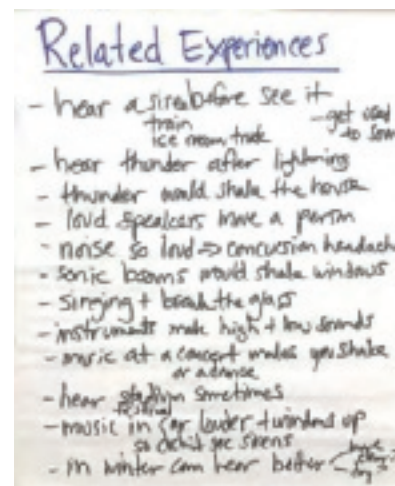 Related Experiences
- hear a siren before see it
train
ice cream truck
- get used
to
- hear thunder after lightning
- thunder would shake the house
- loud speakers move a person
- noise so loud => concussion headach
- sonic booms would shake windows
- singing + break the glass
- instruments make high + low sounds
- music at a concert makes you shake
or a dance
- hear stadium sometimes
festival
- music in car louder + windows up
so don't see sirens
- in winter can hear better